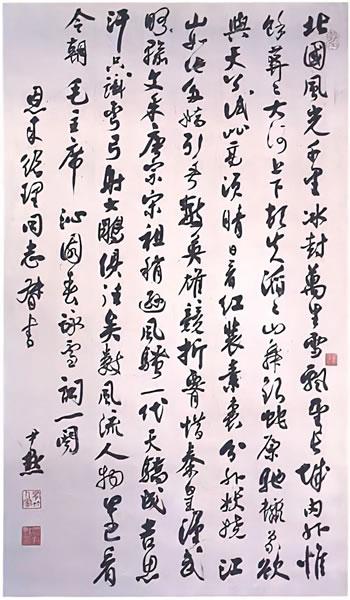 北國風光千里冰封萬里雪飄望長城內外惟
餘莽々大河上下頓失滔々山舞銀蛇原馳蠟象欲
與天公試比高須晴日看紅裝素裹分外妖嬈江
山如此多嬌引無數英雄競折腰惜秦皇漢武
略輸文采唐宗宋祖稍遜風騷一代天驕成吉思
汗只識彎弓射大鵰俱往矣數風流人物還看
今朝 毛主席 沁園春詠雪詞一闋
恩來總理同志書
尹默